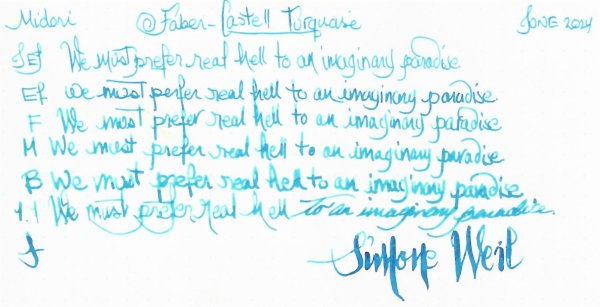 Midori @Faber-Castell Turquoise JUNE 2024
JEf We must prefer real hell to an imaginary paradise
Ef We must perfer real hell to an imaginary paradise
F We must prefer real hell to an imaginary paradise
M We must prefer real hell to an imaginary paradise
B We must prefer real hell to an imaginary paradise
1.1 We must prefer real hell to an imaginary paradise.
f Simone Weil